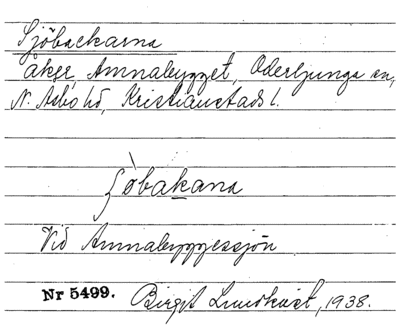 Sjöbackarna
åker, Amnabygget, Oderljunga sn,
N. Åsbo hd, Kristianstads l.
ʃòbakana
Vid Amnabyggessjön
Nr 5499. Birgit Lundkvist, 1938.